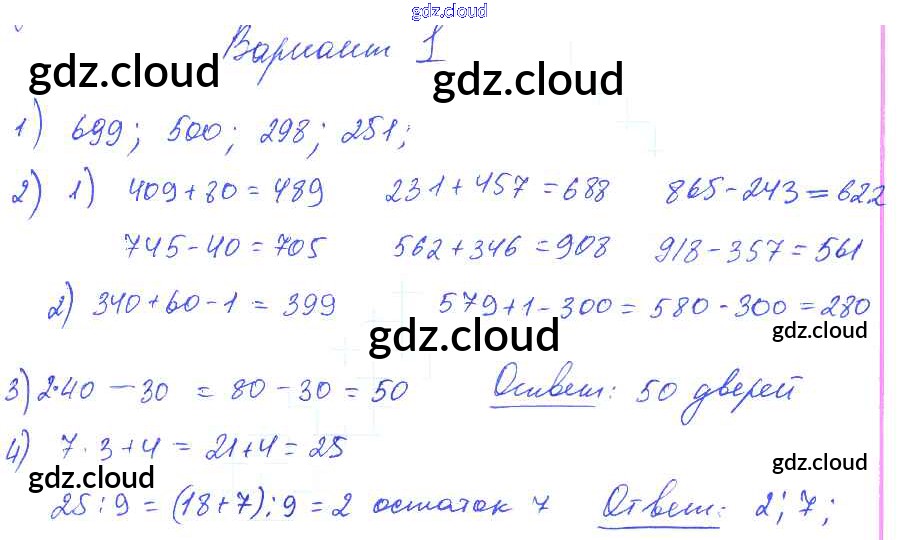 gdz.cloud
Вариант 1
gdz.cloud gdz.cloud
1) 699; 500; 298; 251;
2) 1) 409+80=489 231+457=688 865-243=622
745-40=705 562+346=908 918-357=561
2) 340+60-1=399 579+1-300=580-300=280
gdz.cloud gdz.cloud
3) 2·40-30=80-30=50 Ответ: 50 дверей
4) 7·3+4=21+4=25
gdz.cloud gdz.cloud
25:9=(18+7):9=2 остаток 7 Ответ: 2; 7;